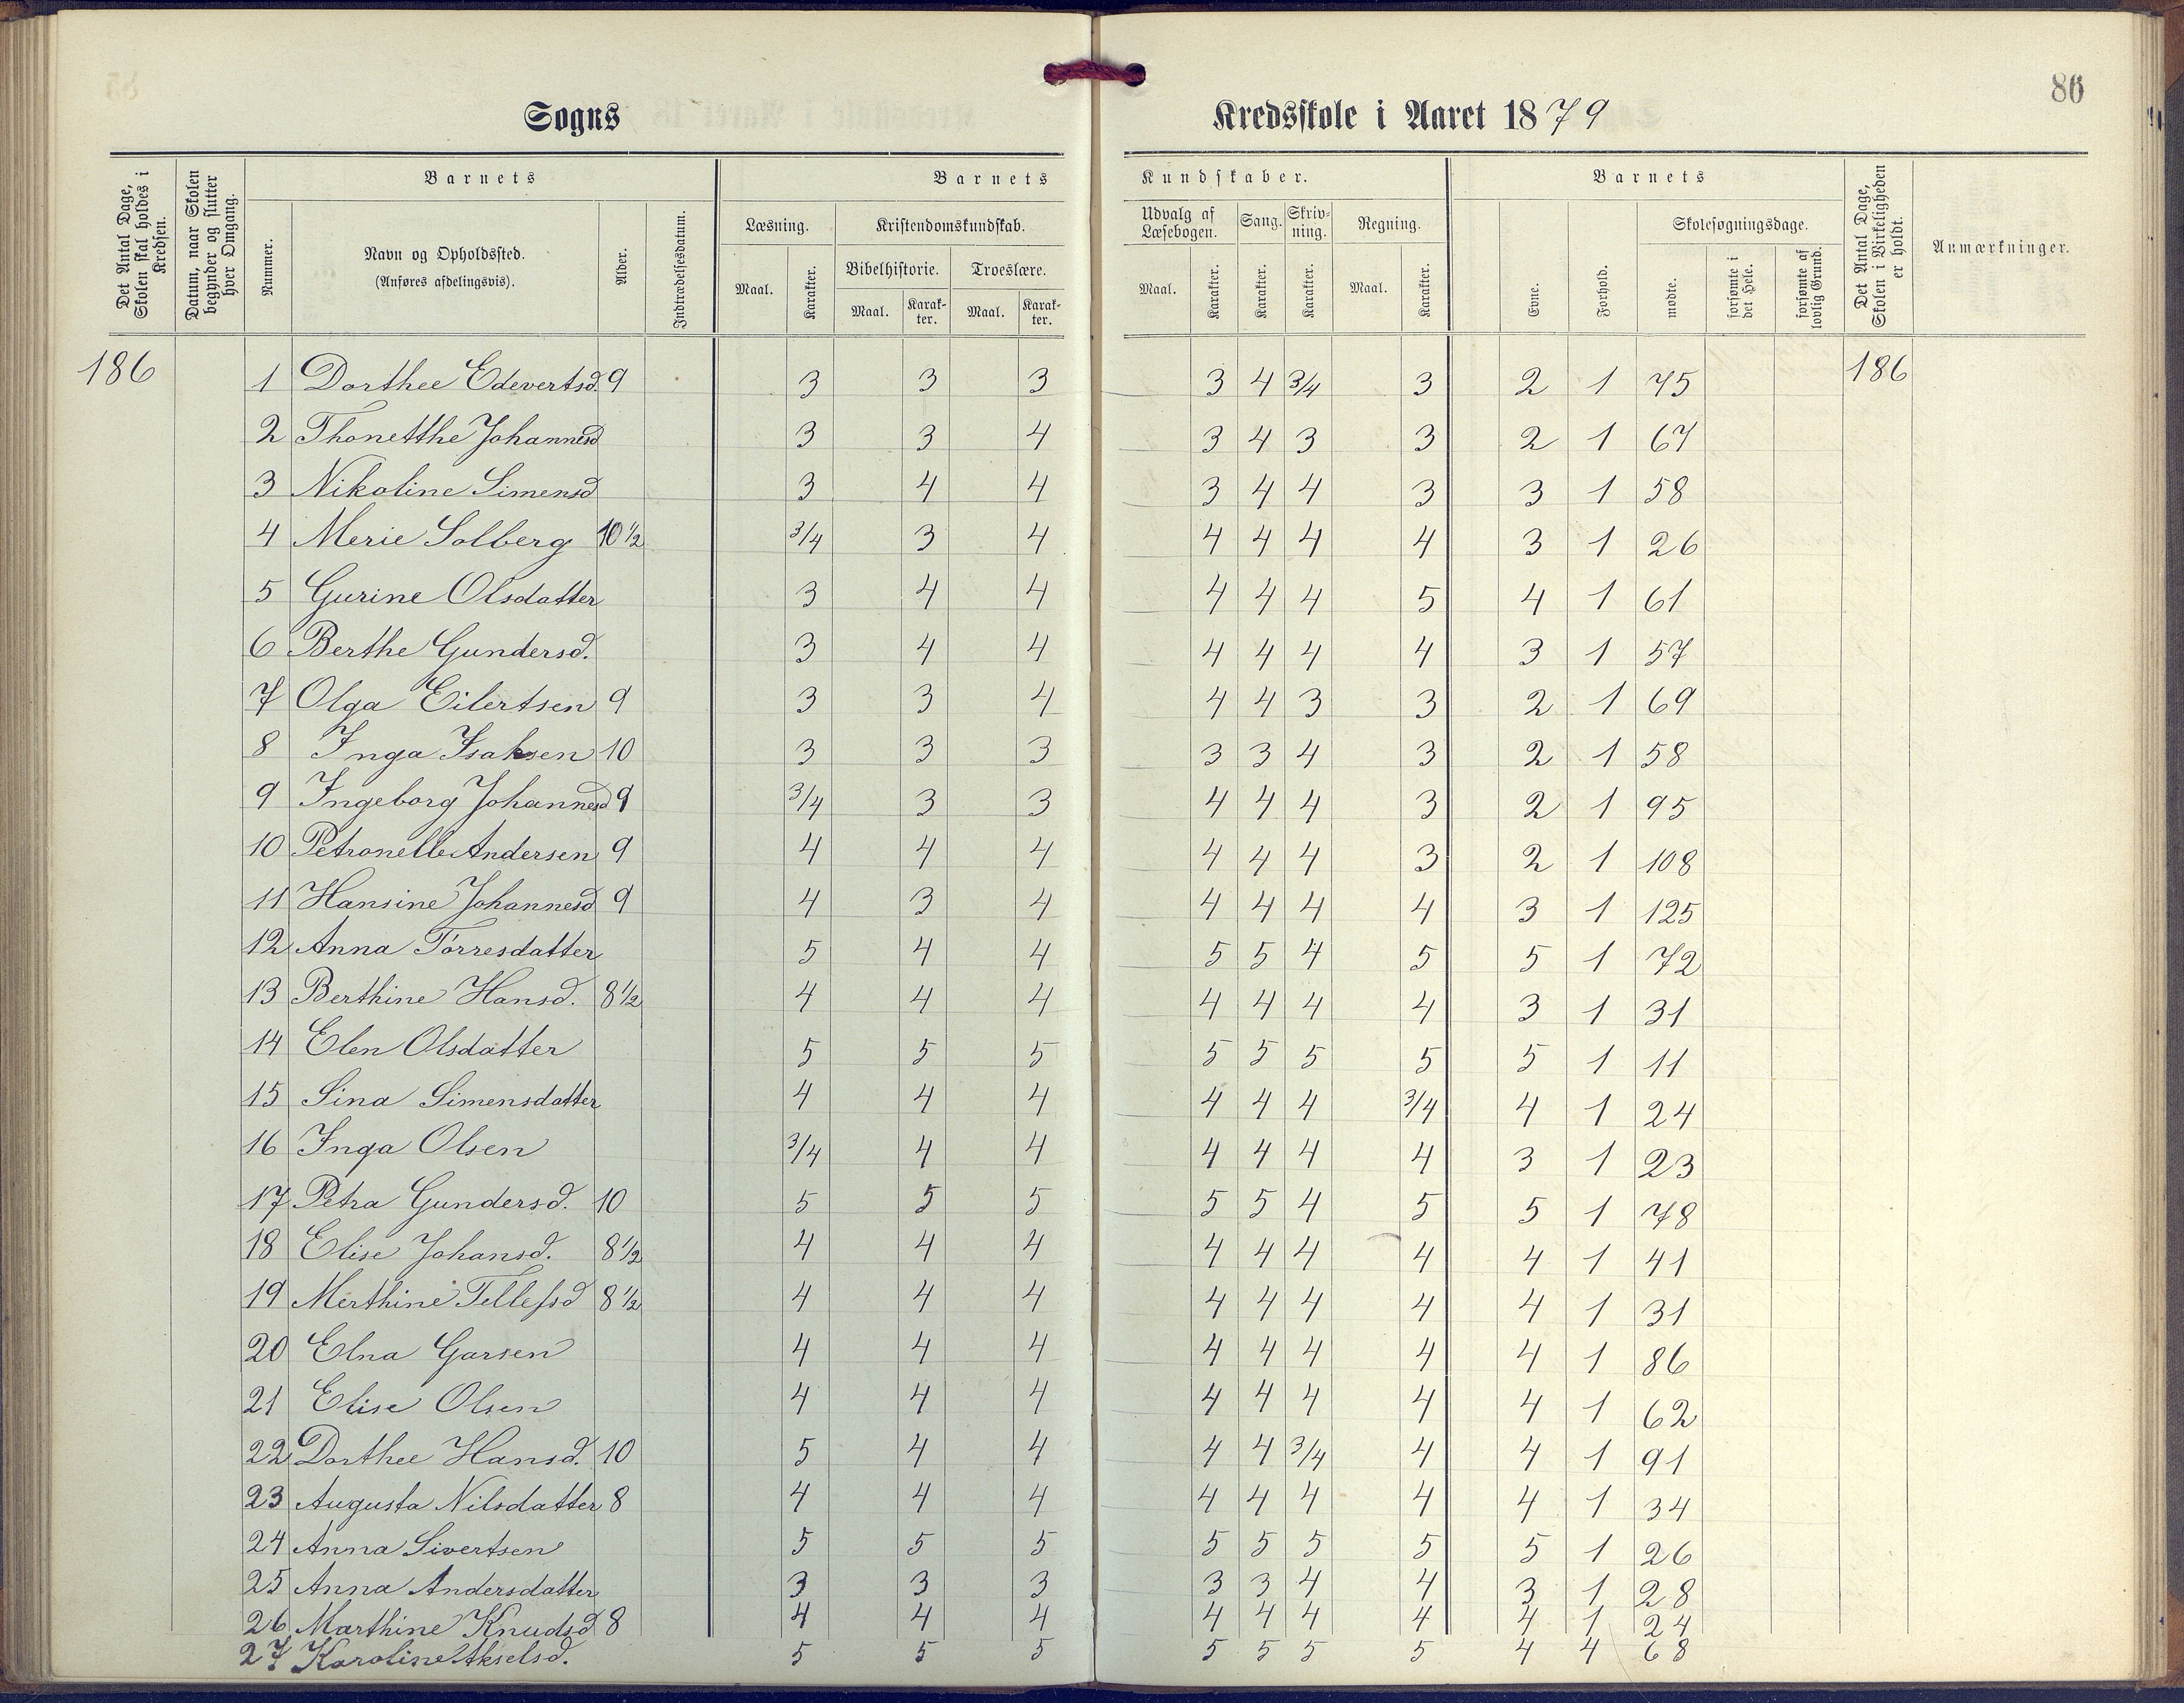 86
Sogns Kredsskole i Aaret 1879
Det Antal Dage, Skolen skal holdes i Kredsen.
Datum, naar Skolen begynder og slutter hver Omgang.
Barnets
Nummer.
Navn og Opholdssted.
(Anføres afdelingsvis).
Alder.
Indtrædelsesdatum.
Barnets Kundskaber.
Læsning.
Maal.
Karakter.
Kristendomskundskab.
Bibelhistorie.
Maal.
Karakter.
Troeslære.
Maal.
Karakter.
Udvalg af Læsebogen.
Maal.
Karakter.
Sang.
Karakter.
Skrivning.
Karakter.
Regning.
Maal.
Karakter.
Barnets
Evne.
Forhold.
Skolesøgningsdage.
mødte.
forsømte i det Hele.
forsømte af lovlig Grund.
Det Antal Dage, Skolen i Virkeligheden er holdt.
Anmærkninger.
186 1 Dorthee Edevertsd. 9 3 3 3 3 4 3/4 3 2 1 75 186
2 Thonetthe Johannesd 3 3 4 3 4 3 3 2 1 67
3 Nikoline Simensd 3 4 4 3 4 4 3 3 1 58
4 Merie Solberg 10 1/2 3/4 3 4 4 4 4 4 3 1 26
5 Gurine Olsdatter 3 4 4 4 4 4 5 4 1 61
6 Berthe Gundersd. 3 4 4 4 4 4 4 3 1 57
7 Olga Eilertsen 9 3 3 4 4 4 3 3 2 1 69
8 Inga Isaksen 10 3 3 3 3 3 4 3 2 1 58
9 Ingeborg Johannesd 9 3/4 3 3 4 4 4 3 2 1 95
10 Petronelle Andersen 9 4 4 4 4 4 4 3 2 1 108
11 Hansine Johannesd 9 4 3 4 4 4 4 4 3 1 125
12 Anna Torresdatter 5 4 4 5 5 4 5 5 1 72
13 Berthine Hansd. 8 1/2 4 4 4 4 4 4 4 3 1 31
14 Elen Olsdatter 5 5 5 5 5 5 5 5 1 11
15 Sina Simensdatter 4 4 4 4 4 4 3/4 4 1 24
16 Inga Olsen 3/4 4 4 4 4 4 4 3 1 23
17 Petra Gundersd. 10 5 5 5 5 5 4 5 5 1 78
18 Elise Johansd. 8 1/2 4 4 4 4 4 4 4 4 1 41
19 Merthine Tellefsd 8 1/2 4 4 4 4 4 4 4 4 1 31
20 Elna Garsen 4 4 4 4 4 4 4 4 1 86
21 Elise Olsen 4 4 4 4 4 4 4 4 1 62
22 Dorthee Hansd. 10 5 4 4 4 4 3/4 4 4 1 91
23 Augusta Nilsdatter 8 4 4 4 4 4 4 4 4 1 34
24 Anna Sivertsen 5 5 5 5 5 5 5 5 1 26
25 Anna Andersdatter 3 3 3 3 3 4 4 3 1 28
26 Marthine Knudsd 8 4 4 4 4 4 4 4 4 1 24
27 Karoline Akselsd. 5 5 5 5 5 5 5 4 4 68